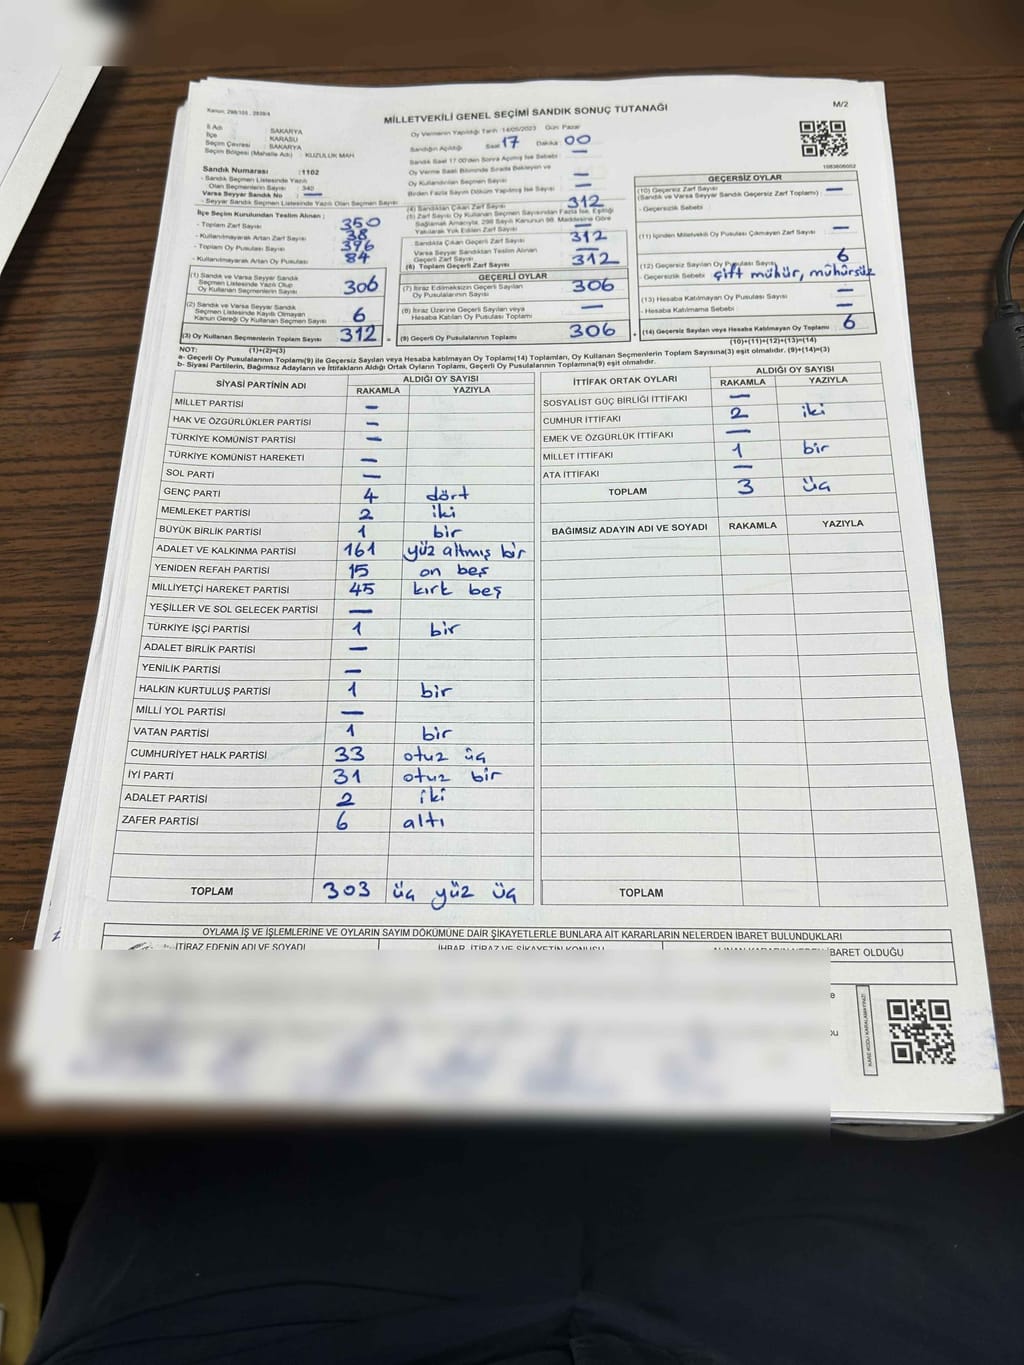 Kanun: 298/105 , 2839/4
MİLLETVEKİLİ GENEL SEÇİMİ SANDIK SONUÇ TUTANAĞI
M/2
İl Adı : SAKARYA
İlçe : KARASU
Seçim Çevresi : SAKARYA
Seçim Bölgesi (Mahalle Adı) : KUZULUK MAH
Sandık Numarası : 1102
- Sandık Seçmen Listesinde Yazılı
Olan Seçmenlerin Sayısı : 340
Varsa Seyyar Sandık No : —
- Seyyar Sandık Seçmen Listesinde Yazılı Olan Seçmen Sayısı
İlçe Seçim Kurulundan Teslim Alınan ;
- Toplam Zarf Sayısı 350
- Kullanılmayarak Artan Zarf Sayısı 38
- Toplam Oy Pusulası Sayısı 396
- Kullanılmayarak Artan Oy Pusulası 84
(1) Sandık ve Varsa Seyyar Sandık
Seçmen Listesinde Yazılı Olup
Oy Kullanan Seçmenlerin Sayısı 306
(2) Sandık ve Varsa Seyyar Sandık
Seçmen Listesinde Kayıtlı Olmayan
Kanun Gereği Oy Kullanan Seçmen Sayısı 6
(3) Oy Kullanan Seçmenlerin Toplam Sayısı 312 =
(1)+(2)=(3)
Oy Vermenin Yapıldığı Tarih :14/05/2023 Gün: Pazar
Sandığın Açıldığı Saat 17 Dakika 00
Sandık Saat 17:00'den Sonra Açılmış İse Sebebi —
Oy Verme Saati Bitiminde Sırada Bekleyen ve
Oy Kullandırılan Seçmen Sayısı —
Birden Fazla Sayım Döküm Yapılmış İse Sayısı —
(4) Sandıktan Çıkan Zarf Sayısı 312
(5) Zarf Sayısı Oy Kullanan Seçmen Sayısından Fazla İse, Eşitliği
Sağlamak Amacıyla, 298 Sayılı Kanunun 98. Maddesine Göre
Yakılarak Yok Edilen Zarf Sayısı —
Sandıkta Çıkan Geçerli Zarf Sayısı 312
Varsa Seyyar Sandıktan Teslim Alınan
Geçerli Zarf Sayısı —
(6) Toplam Geçerli Zarf Sayısı 312
GEÇERLİ OYLAR
(7) İtiraz Edilmeksizin Geçerli Sayılan
Oy Pusulalarının Sayısı 306
(8) İtiraz Üzerine Geçerli Sayılan veya
Hesaba Katılan Oy Pusulası Toplamı —
(9) Geçerli Oy Pusulalarının Toplamı 306 +
1083606002
GEÇERSİZ OYLAR
(10) Geçersiz Zarf Sayısı
(Sandık ve Varsa Seyyar Sandık Geçersiz Zarf Toplamı) : —
- Geçersizlik Sebebi :
(11) İçinden Milletvekili Oy Pusulası Çıkmayan Zarf Sayısı —
(12) Geçersiz Sayılan Oy Pusulası Sayısı 6
- Geçersizlik Sebebi çift mühür, mühürsüz
(13) Hesaba Katılmayan Oy Pusulası Sayısı —
- Hesaba Katılmama Sebebi : —
(14) Geçersiz Sayılan veya Hesaba Katılmayan Oy Toplamı 6
(10)+(11)+(12)+(13)=(14)
NOT:
a- Geçerli Oy Pusulalarının Toplamı(9) ile Geçersiz Sayılan veya Hesaba katılmayan Oy Toplamı(14) Toplamları, Oy Kullanan Seçmenlerin Toplam Sayısına(3) eşit olmalıdır. (9)+(14)=(3)
b- Siyasi Partilerin, Bağımsız Adayların ve İttifakların Aldığı Ortak Oyların Toplamı, Geçerli Oy Pusulalarının Toplamına(9) eşit olmalıdır.
SİYASİ PARTİNİN ADI ALDIĞI OY SAYISI
RAKAMLA YAZIYLA
MİLLET PARTİSİ —
HAK VE ÖZGÜRLÜKLER PARTİSİ —
TÜRKİYE KOMÜNİST PARTİSİ —
TÜRKİYE KOMÜNİST HAREKETİ —
SOL PARTİ —
GENÇ PARTİ 4 dört
MEMLEKET PARTİSİ 2 iki
BÜYÜK BİRLİK PARTİSİ 1 bir
ADALET VE KALKINMA PARTİSİ 161 yüz altmış bir
YENİDEN REFAH PARTİSİ 15 on beş
MİLLİYETÇİ HAREKET PARTİSİ 45 kırk beş
YEŞİLLER VE SOL GELECEK PARTİSİ —
TÜRKİYE İŞÇİ PARTİSİ 1 bir
ADALET BİRLİK PARTİSİ —
YENİLİK PARTİSİ —
HALKIN KURTULUŞ PARTİSİ 1 bir
MİLLİ YOL PARTİSİ —
VATAN PARTİSİ 1 bir
CUMHURİYET HALK PARTİSİ 33 otuz üç
İYİ PARTİ 31 otuz bir
ADALET PARTİSİ 2 iki
ZAFER PARTİSİ 6 altı
TOPLAM 303 üç yüz üç
İTTİFAK ORTAK OYLARI ALDIĞI OY SAYISI
RAKAMLA YAZIYLA
SOSYALİST GÜÇ BİRLİĞİ İTTİFAKI —
CUMHUR İTTİFAKI 2 iki
EMEK VE ÖZGÜRLÜK İTTİFAKI —
MİLLET İTTİFAKI 1 bir
ATA İTTİFAKI —
TOPLAM 3 üç
BAĞIMSIZ ADAYIN ADI VE SOYADI RAKAMLA YAZIYLA
TOPLAM
OYLAMA İŞ VE İŞLEMLERİNE VE OYLARIN SAYIM DÖKÜMÜNE DAİR ŞİKAYETLERLE BUNLARA AİT KARARLARIN NELERDEN İBARET BULUNDUKLARI
İTİRAZ EDENİN ADI VE SOYADI İHBAR, İTİRAZ VE ŞİKAYETİN KONUSU ALINAN KARARIN NEDEN İBARET OLDUĞU
KARE KODU KARALAMAYINIZ!